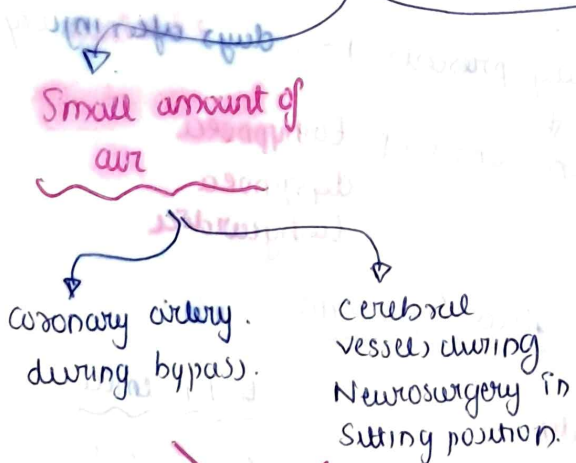 Small amount of
air
coronary artery.
during bypass.
cerebral
vessels during
Neurosurgery in
Sitting position.